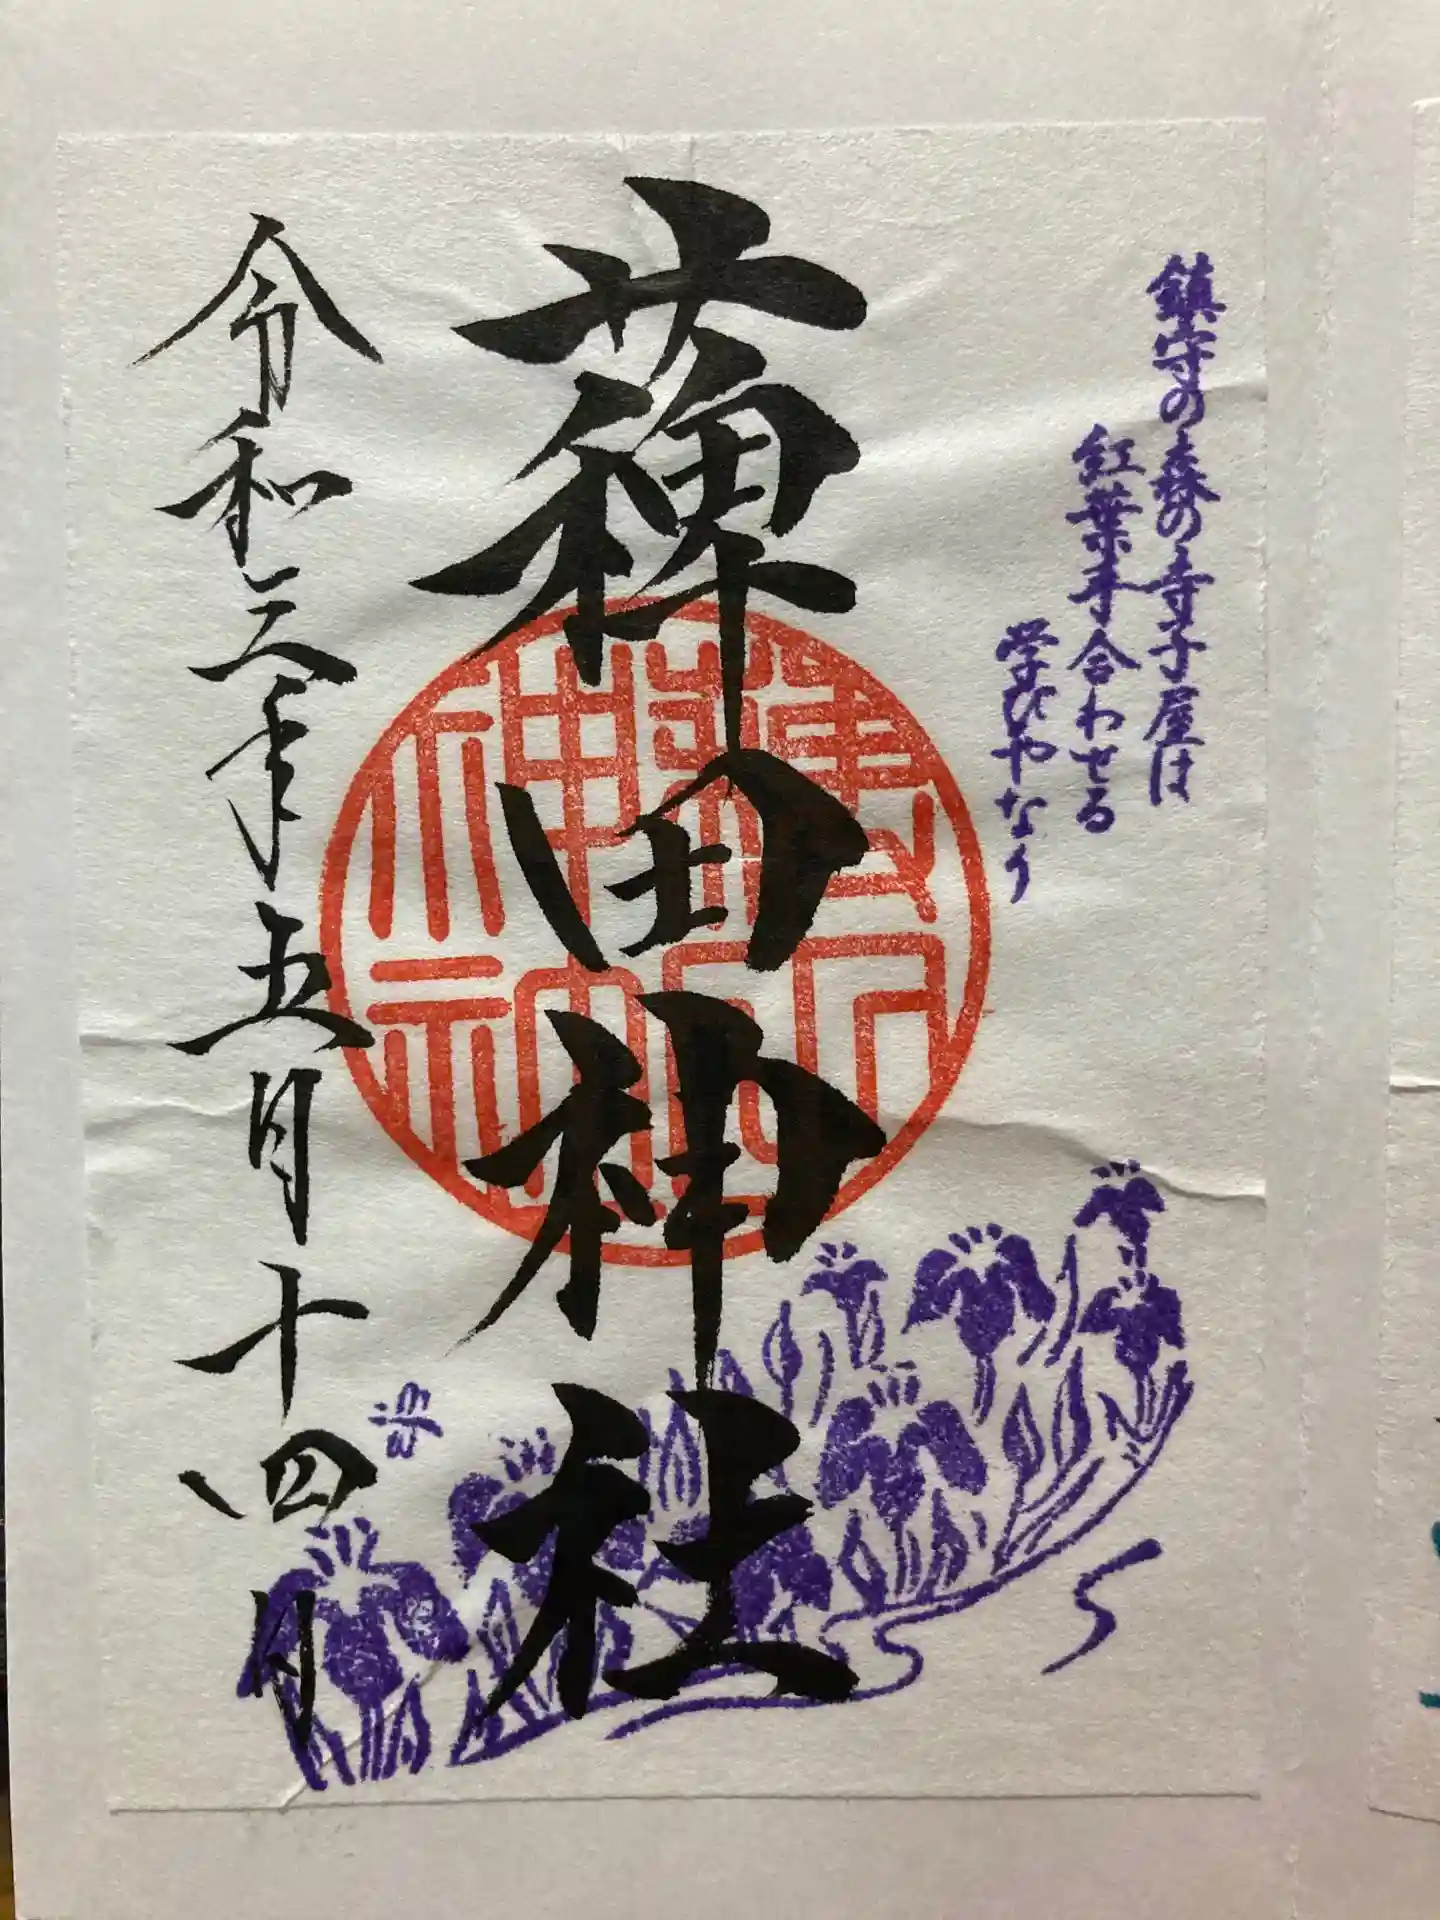 鎮守の森の寺子屋は
紅葉手合わせる
学びやなり
薭田神社
令和三年五月十四日